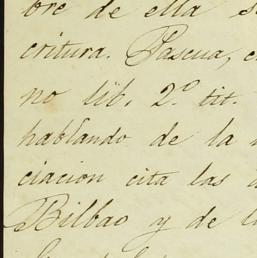 bre de ella s
critura. Pascua, e
no lib. 2.º tit.
hablando de la
ciacion cita las
Bilbao y de l